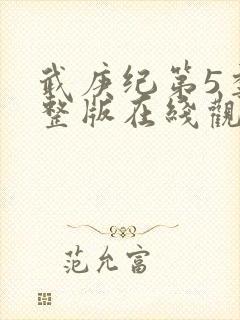 武庚纪第5季
整版在线觀
范允富